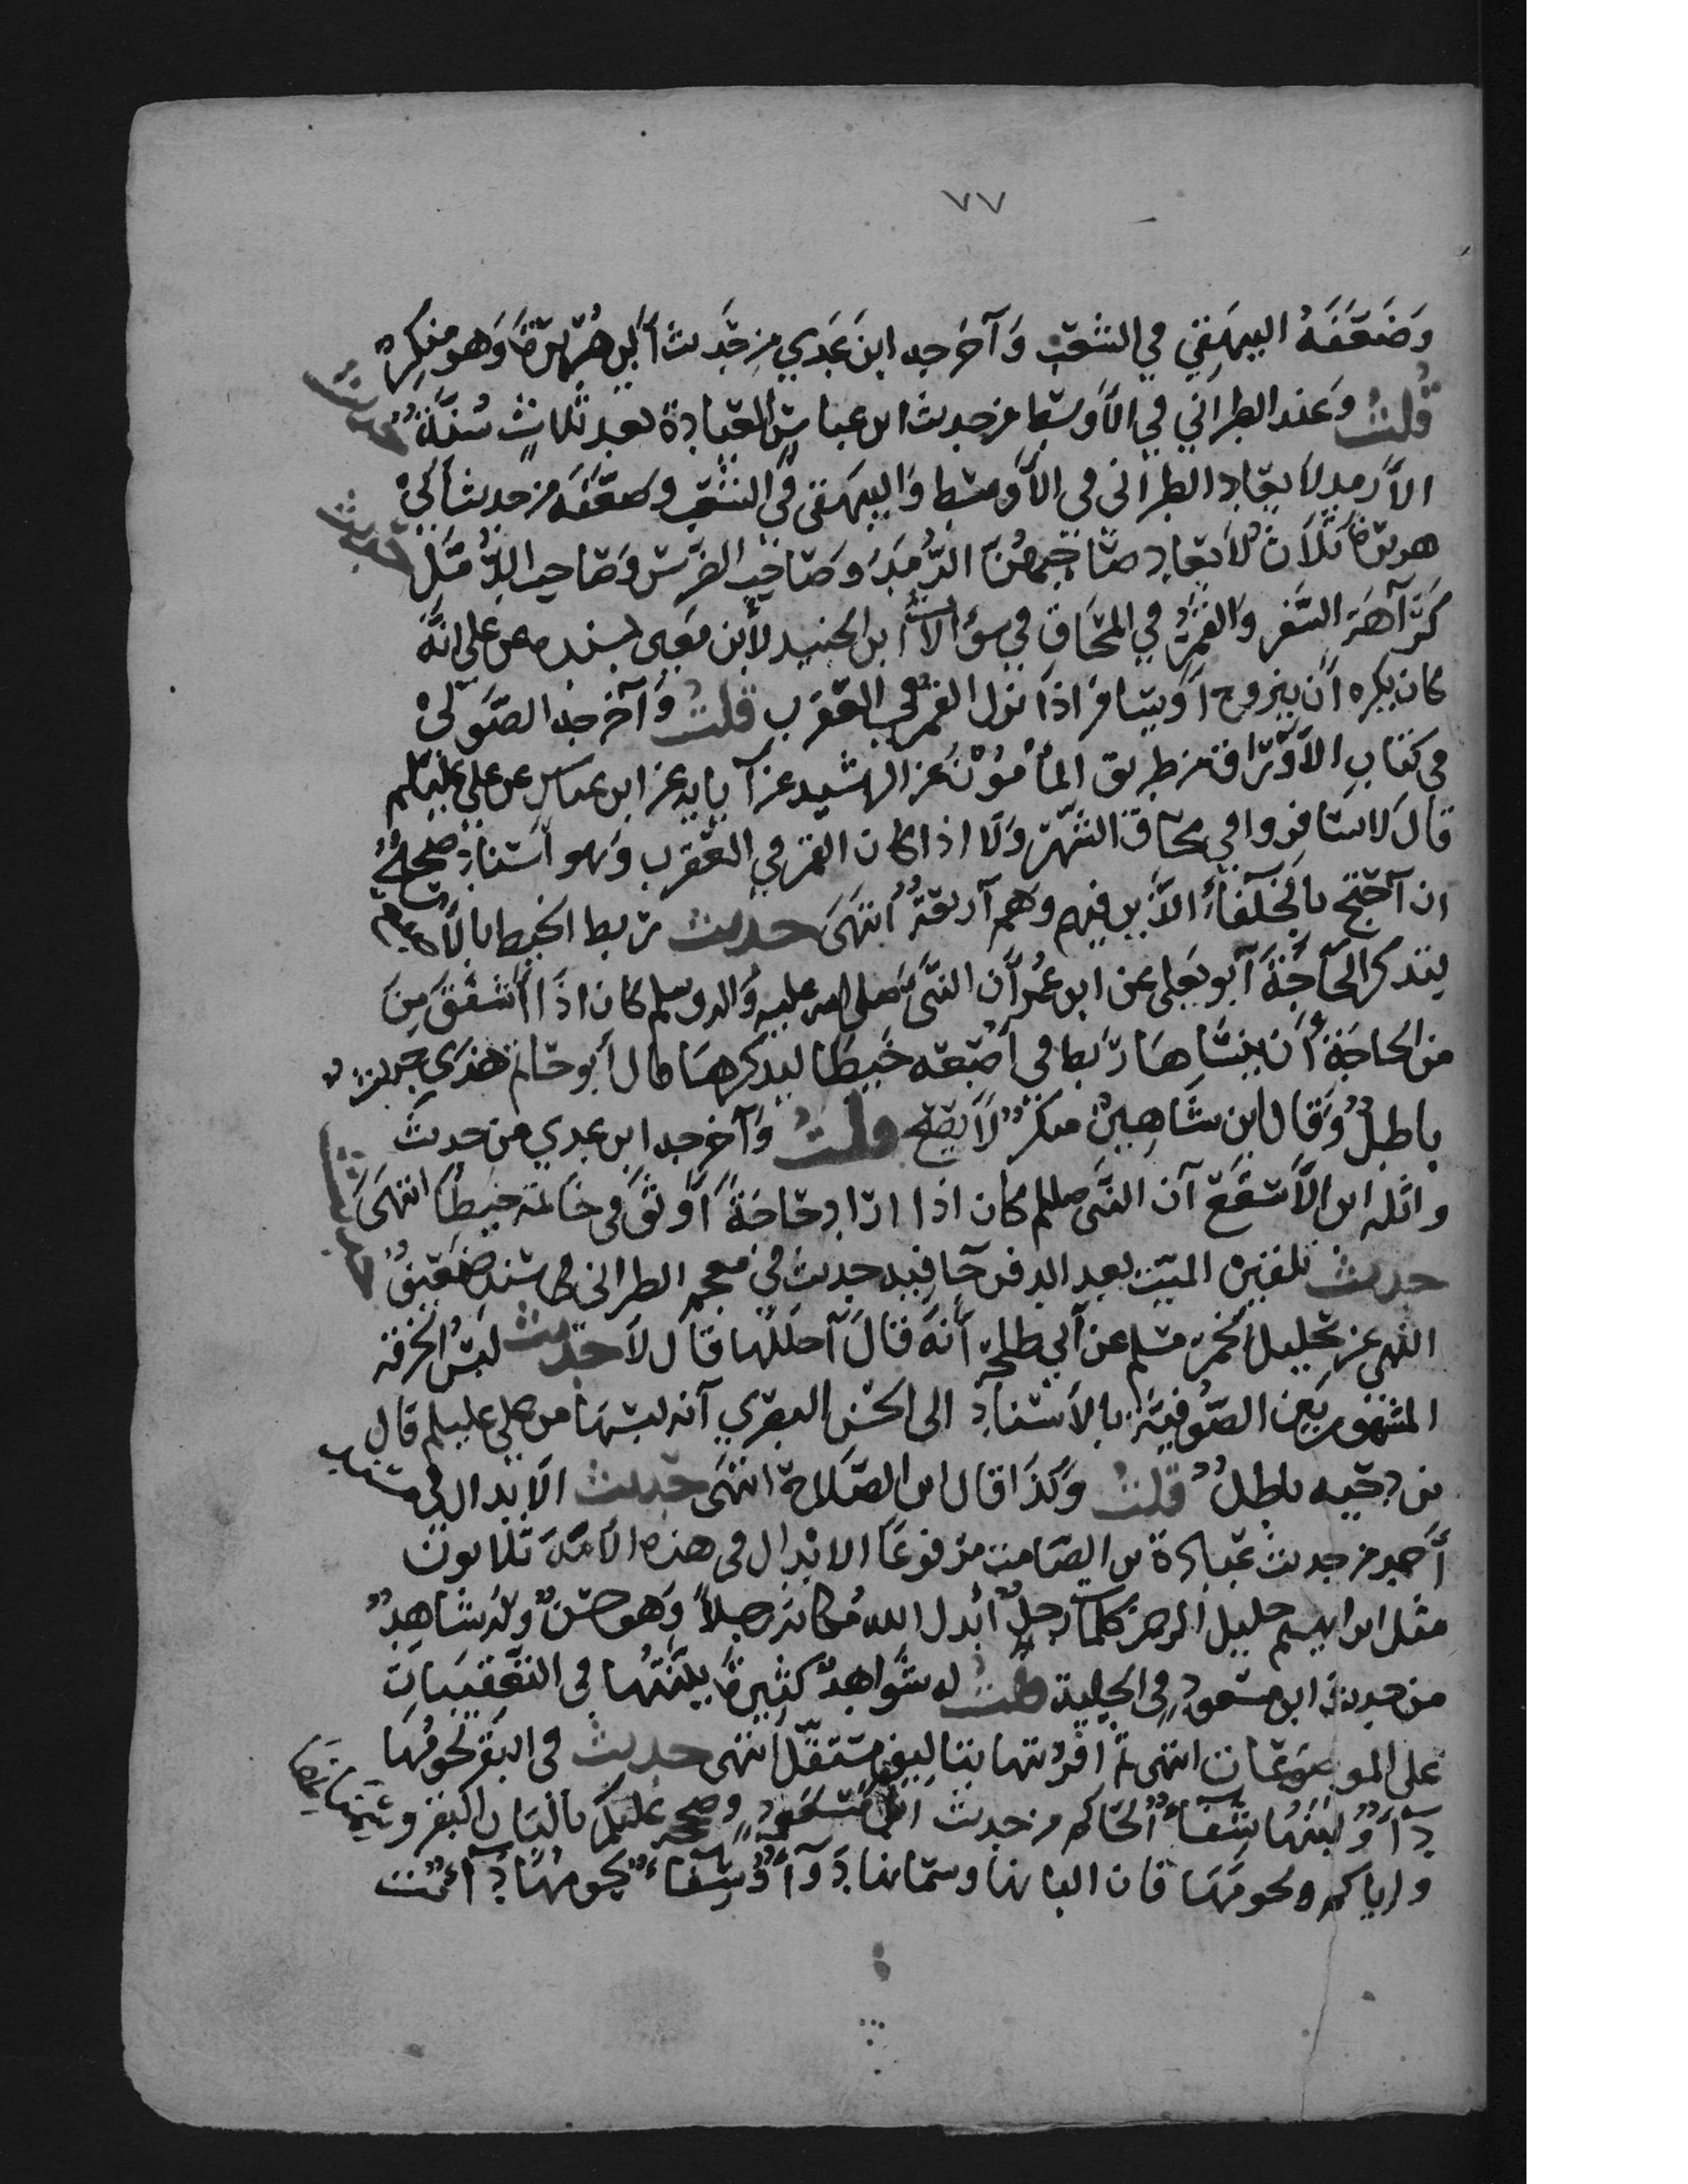 ٧٧
وَضَعَّفَهُ البيهَقِي في الشعَب وَآخرجه ابن عَدي مِن حَديث أبي هُرَيرَة وَهو منكِرٌ
قُلتُ وعَند الطبراني في الأوسَط من حديث ابن عباسٍ العيادة بعد ثلاثٍ سُنَّةٌ حديث
الأرمد لا يعَاد الطبراني في الأوسَط وَالبيهَقي في الشعَب وضعَّفَه من حديث أبي
هريرة ثلاَثٌ لا يعَاد صَاحبهُنَّ الرَّمَد وَصَاحب الضرَّس وَصَاحب الدُّمَّل حديث
كَرَآهَة السَّفر وَالقمَرُ في المحَاق في سؤالات ابن الجنيد لأبن مَعين بسنده عن علي انَّهُ
كان يكره أن يتزوج أو يسَافر اذا نزل القمرُ في العَقرَب قلتُ وَآخرجه الصَّولي
في كتاب الأورَاق من طريق المأمُوْن عن الرشيد عن آبايه عن ابن عباس عن علي عليلم
قالَ لا تسَافروا في محَاق الشَّهر وَلا اذا كان القمَر في العَقرَب وَهو اسنَاد صَحيحٌ
ان آحتج بالخلَفَاءُ الذَّين فيهم وهم آربَعَةٌ انتهَى حديث ربط الخيط بالأصبع
ليتذكر الحَآجَةَ آبو يَعلى عن ابن عُمر آن النَّبَّى صَلى الله عليه وَاله وسلم كان اذَا أشفقَ مِنَ
من الحاجَةِ أن ينسَاهَا ربَط في اَصبَعه خَيطَا ليذكرهَا قال آبو حَاتم هَذى حديث
بَاطِلٌ وَقَال ابن شَاهِينْ منكرٌ لاَ يَصِح قلتُ وَآخرجه ابن عدي من حديث
واثله ابن الأسقَع آن النَّبَّى صللم كان اذَا ارَاد حَاجَةً اَوثَقَ في خَاتمه خيطا انتهَىَ
حديث تلقين الميّت بعد الدفن جَا فيه حديث في معجم الطبراني في سَنده ضَعيفٌ
النهي عن تخليل الخمر مسلم عن آبي طلحة أنَّه قَالَ آحللُّها قَال لاَ حديث لبسُ الخرقه
المشهور بَين الصُّوفِيَّة بالأسنَاد الى الحسَن البصري آنه لبسَهَا من علي عليلم قالَ
بن دحيه باطلٌ قلتُ وَكذَا قال ابن الصَّلاح انتهَى حديث الابدال في مسند
أحمد من حديث عُبادة بن الصَّامت مرفوعًا الابدال في هذه الأمَّة ثلاثون
مثل ابراهيم خليل الرحمن كلما مَات رجلٌ ابدل الله مكانه رَجلاً وَهو حسَنٌ وله شاهِدٌ
من حديث ابن مسعودٍ في الحلية قلتُ له شَواهدٌ كثيرةٌ بيَّنتُها في التعَّقيبَات
على الموضوعَات انتهى ثمَّ افرَدتها بتاليفٍ مستقلّ انتهى حديث في البقر لحومُهَا
دَآءٌ ولبَنهُا شِفَاءٌ الحَاكم من حديث ابن مَسعُودٍ وصححه عليكم بالبَان البَقر وسَمنَانِهَا
واياكم ولحومَهَا فان البانهَا وسمانهَا دَوآءٌ وَشِفَاءٌ ولحومُهَا دَآءٌ قلت